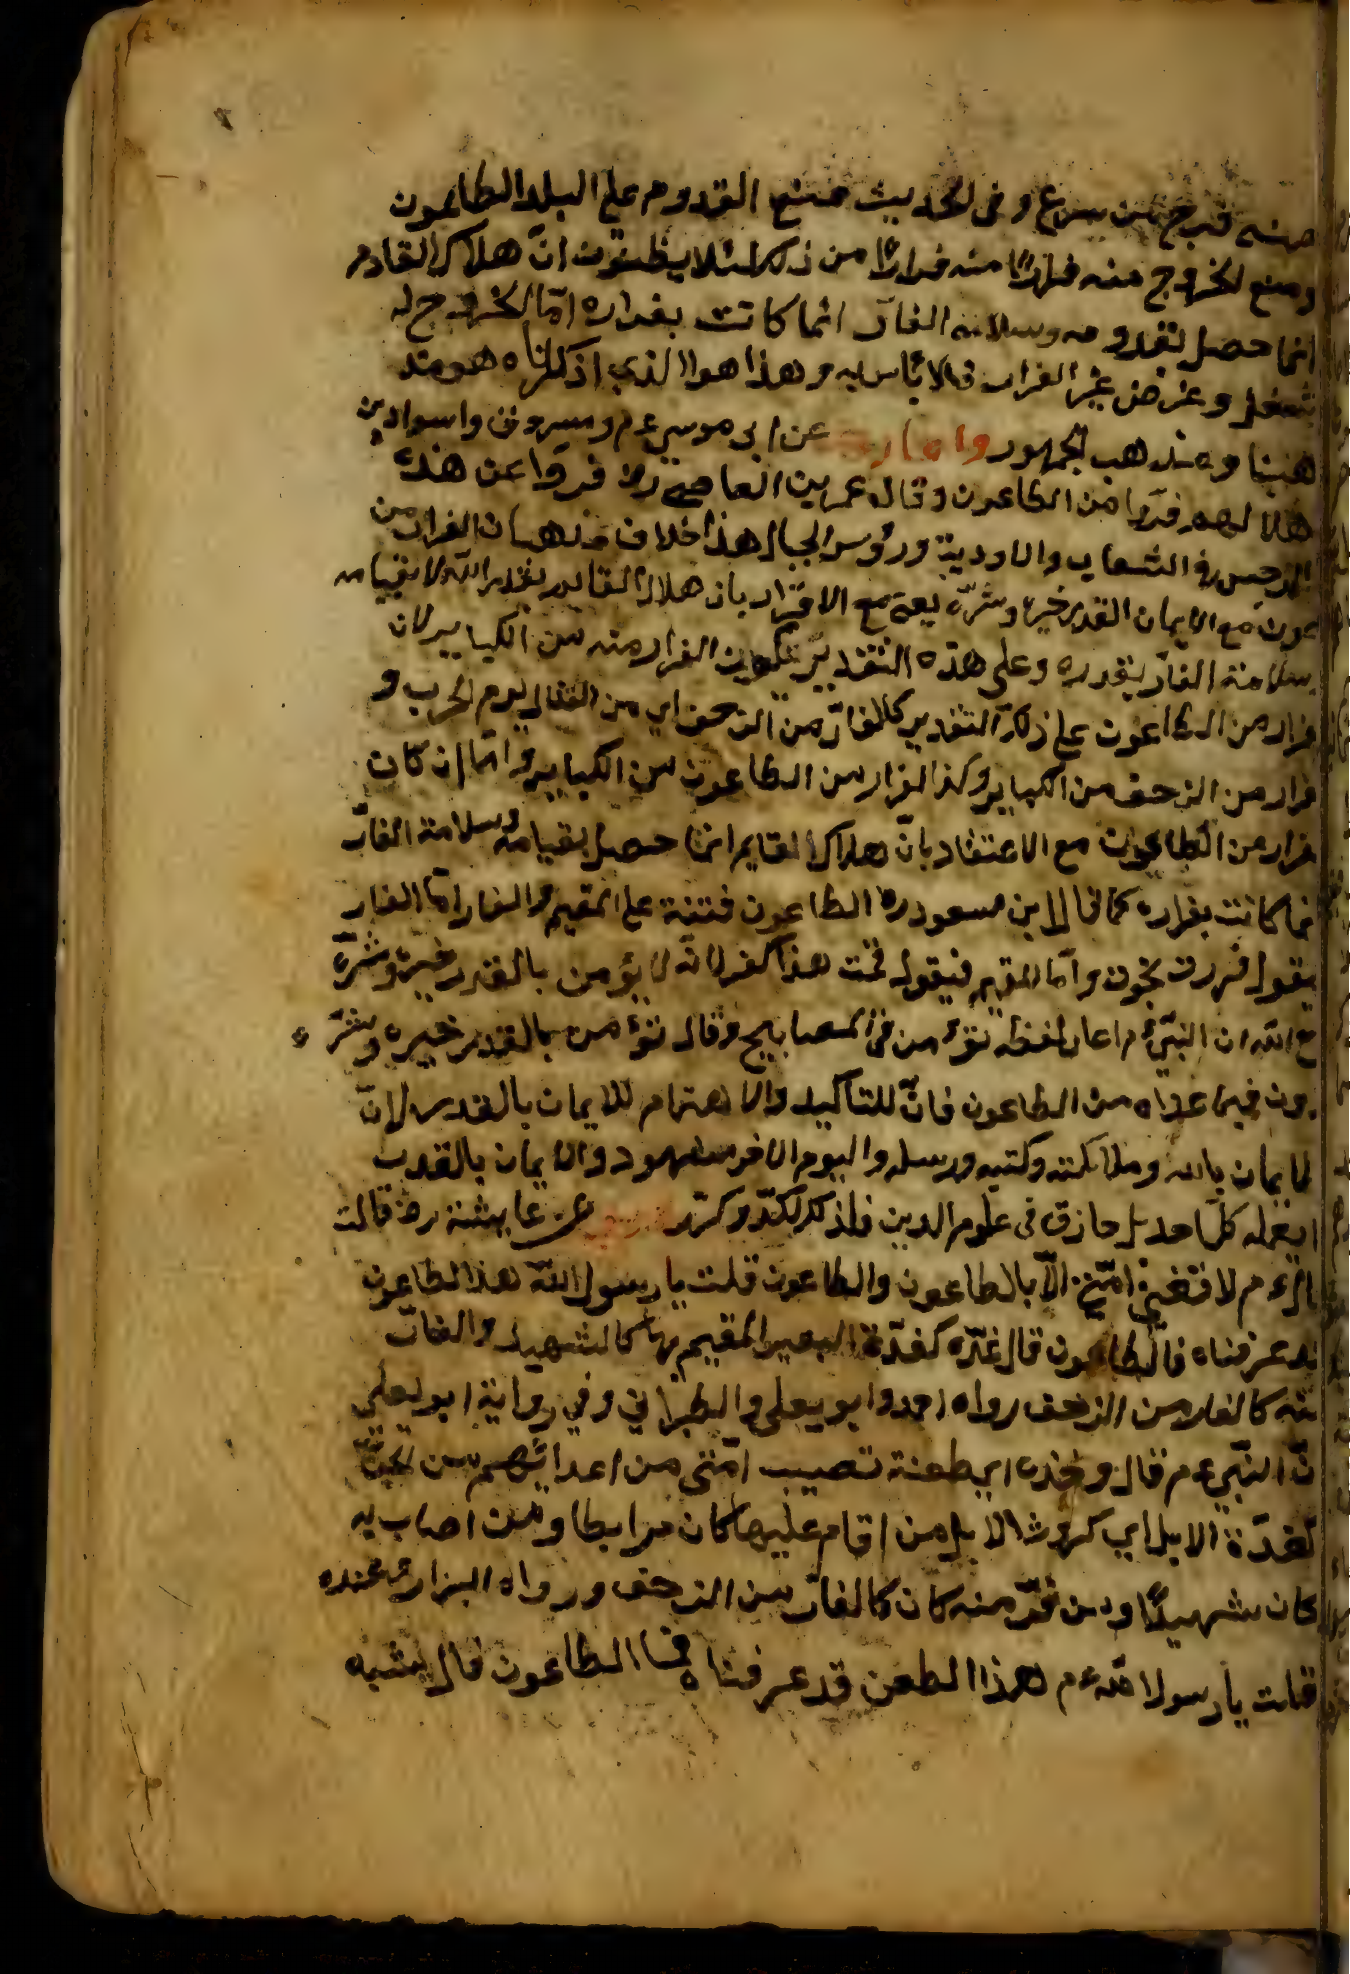 منه فرجع من سرغ وفى الحديث منع القدوم على البلد الطاعون
ومنع الخروج منه فرارًا من ذلك لئلا يظنون انّ هلاك القادم
انما حصل بقدومه وسلامة الفارّ انما كانت بفراره امّا الخروج له
شغل وغرض غير الفرار فلا بأس به وهذا هو الذي اذكرناه هو مذ
هبنا ومذهب الجمهور واما عن ابى موسى عم ومسروق واسواد بن
هلال انهم فرّوا من الطاعون وقال عمر بن العاصى رض فرّوا عن هذه
الرجس فى الشعاب والاودية ورؤس الجبال هذا خلاف مذهبان الفرار من
عون مع الايمان القدر خيره وشرّه يعنى مع الاقرار بان هلاك القايم بقدر الله لا بقيامه
سلامة الفارّ بقدره وعلى هذه التقدير يكون الفرار منه من الكباير لان
فرار من الطاعون على ذلك التقدير كالفارّ من الزحف اي من القتال يوم الحرب و
فرار من الزحف من الكباير وكذا الفرار من الطاعون من الكباير وامّا ان كان
فرار من الطاعون مع الاعتقاد بانّ هلاك القايم انما حصل بقيامه وسلامة الفارّ
نما كانت بفراره كما قال ابن مسعود رض الطاعون فتنة على المقيم والفار امّا الفار
يقول فررت نجوت وامّا المقيم فيقول قمت هذا كفر لانّه لا يؤمن بالقدر خيره وشرّه
ع الله ان النبيّ عم اعاد لفظه تؤمن فى المصابيح وقال تؤمن بالقدر خيره وشرّه
دون فيما عداه من الطاعون فانّ للتاكيد والاهتمام للايمان بالقدر لانّ
لايمان بالله وملائكته وكتبه ورسله واليوم الآخر مشهود والايمان بالقدر
ا يعمله كلّ احد بل حازق فى علوم الدين فلذلك اكّد وكرّر عن عايشة رض قالت
عم لا تفنى امّتى الّا بالطعون والطاعون قلت يا رسول الله هذا الطاعون
قد عرفناه فالطاعون قال غدّه كغدّة البعير المقيم بها كالشهيد والفارّ
منه كالفار من الزحف رواه احمد وابو يعلى والطبرانى وفى رواية ابو يعلى
نّ النبيّ عم قال وخذه اي طعنة تصيب امّتى من اعدائهم من الجنّ
كغدّة الابل اي كروش الابل من اقام عليها كان مرابطا ومن اصاب به
كان شهيدًا ومن فرّ منه كان كالفارّ من الزحف ورواه البزار عنده
قلت يا رسول الله عم هذا الطعن قد عرفناه فما الطاعون قال يشبه